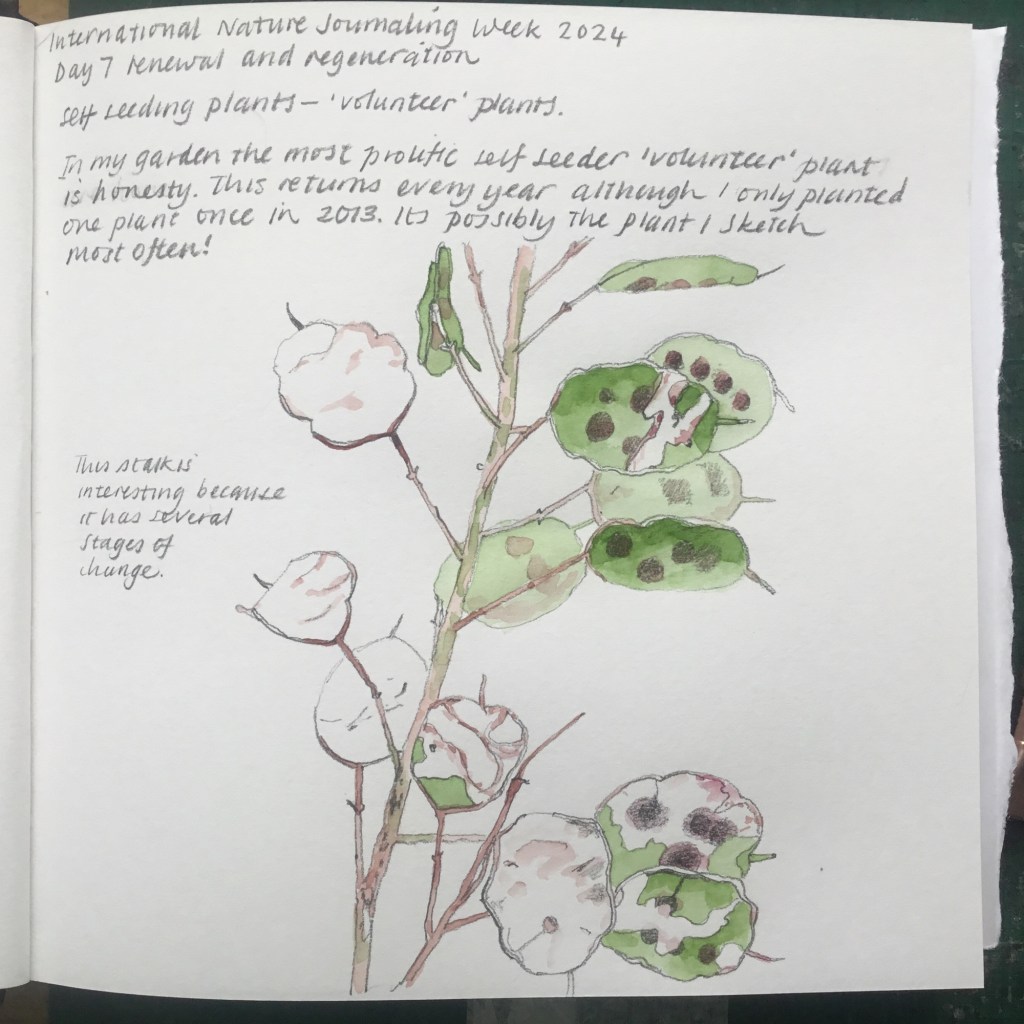 International Nature Journaling Week 2024
Day 7 renewal and regeneration
self seeding plants – 'volunteer' plants.
In my garden the most prolific self seeder 'volunteer' plant
is honesty. This returns every year although I only planted
one plant once in 2013. Its possibly the plant I sketch
most often!
This stalk is
interesting because
it has several
stages of
change.